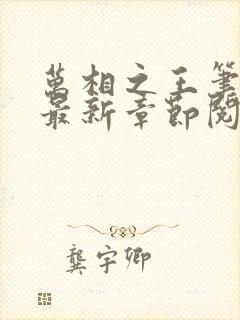 萬相之王筆
最新章節閱
龔宇卿